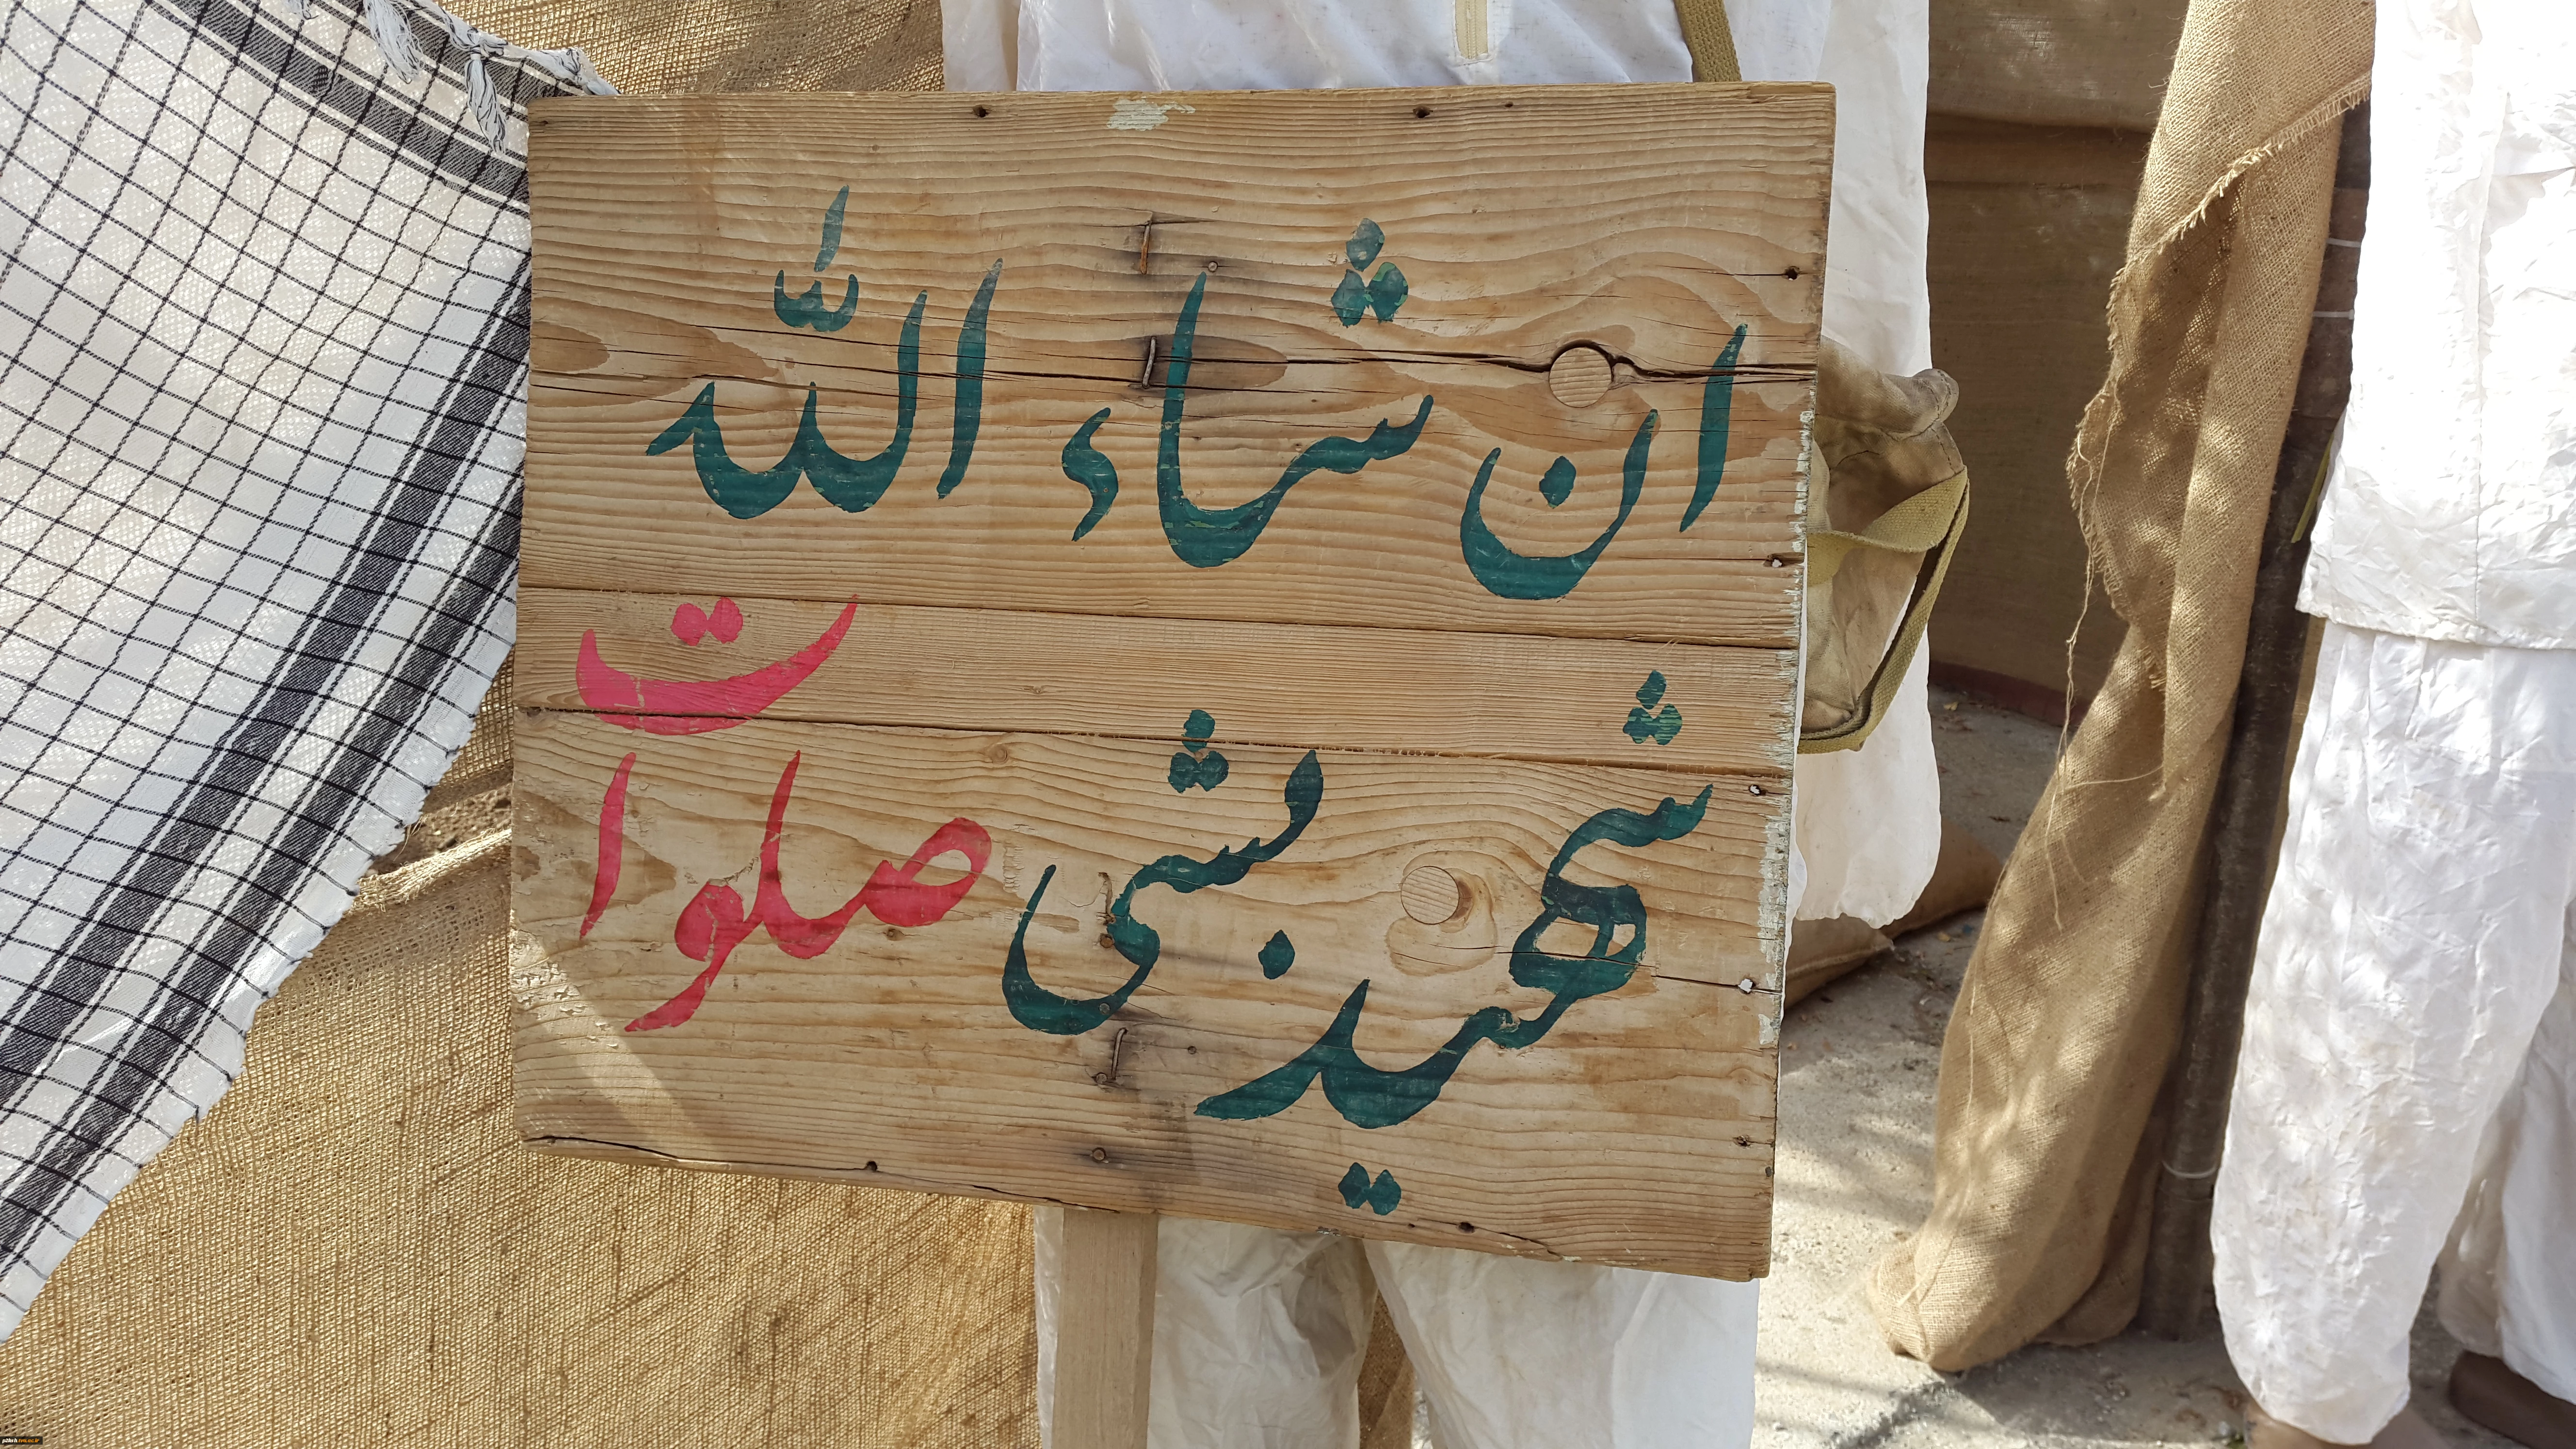 ان شاء الله
شهید بشی صلوات